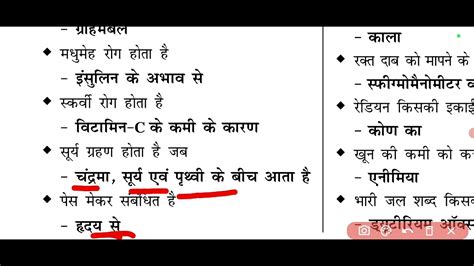 – ग्राहमबेल
◆ मधुमेह रोग होता है
– इंसुलिन के अभाव से
◆ स्कर्वी रोग होता है
– विटामिन-C के कमी के कारण
◆ सूर्य ग्रहण होता है जब
– चंद्रमा, सूर्य एवं पृथ्वी के बीच आता है
◆ पेस मेकर संबंधित है
– हृदय से
– काला
◆ रक्त दाब को मापने के
– स्फीग्मोमैनोमीटर
◆ रेडियन किसकी इकाई
– कोण का
◆ खून की कमी को
– एनीमिया
◆ भारी जल शब्द
– ड्यूटीरियम